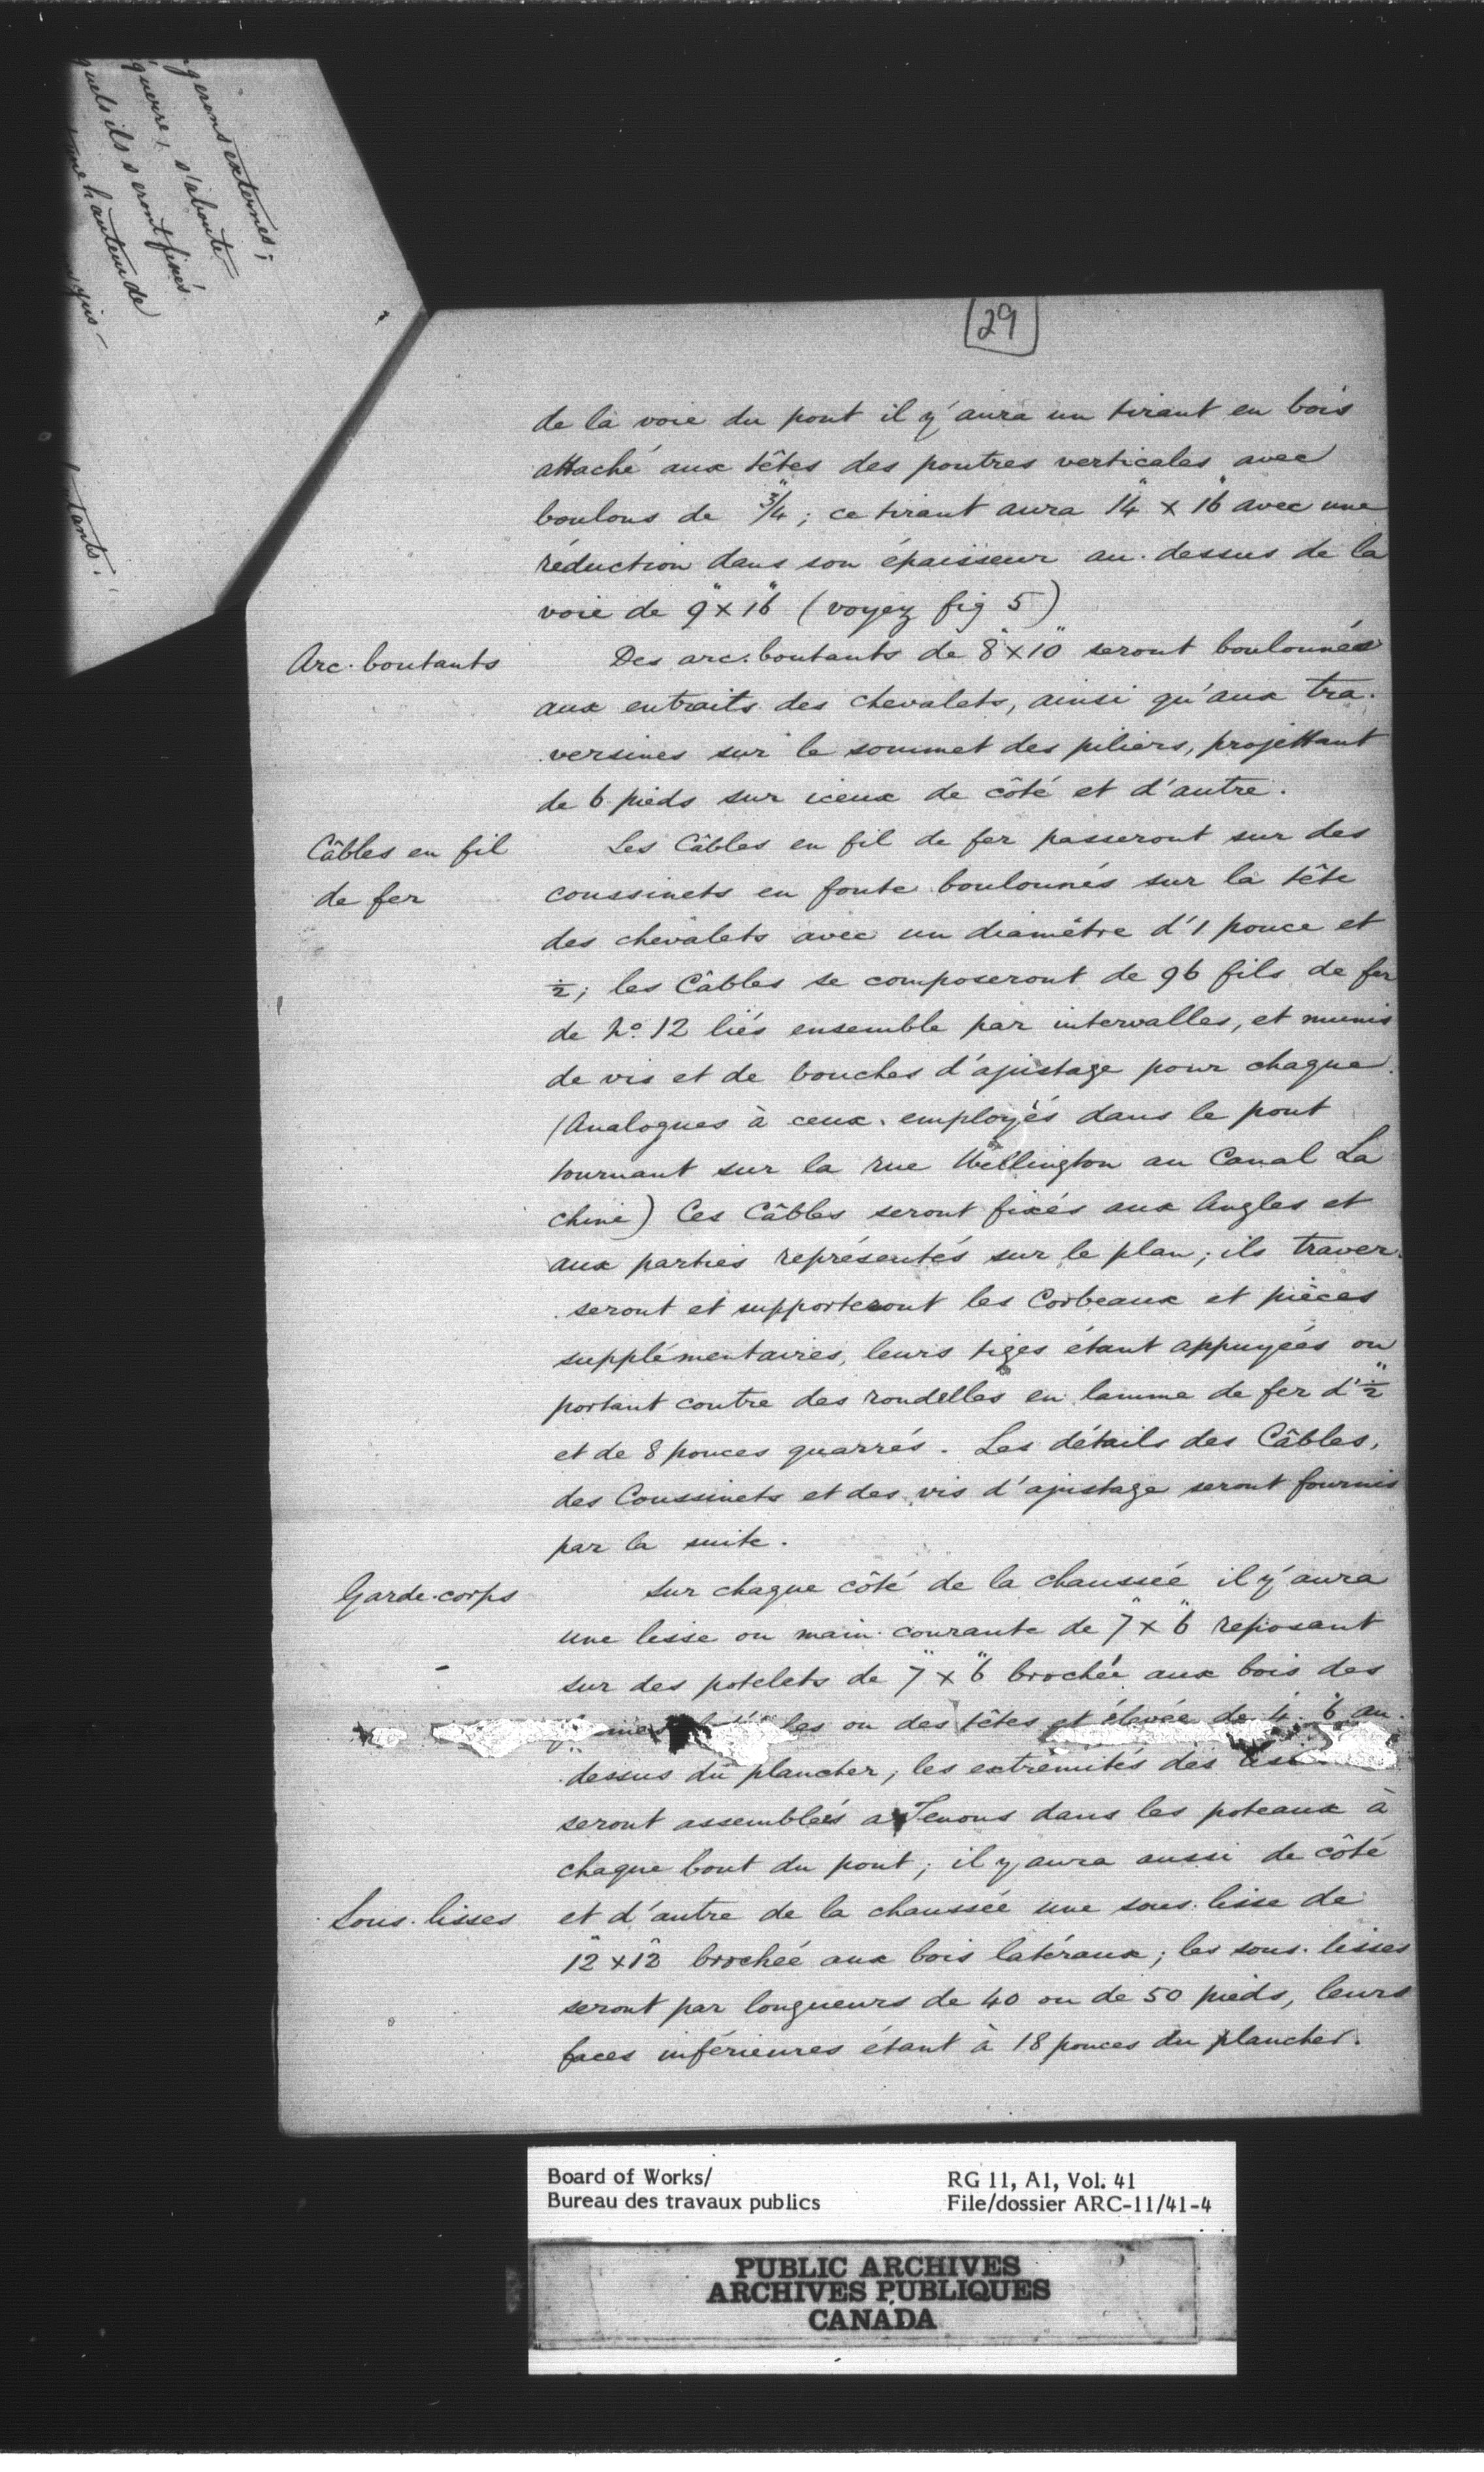 gerons externes;
querre, s'aboute
quels ils seront fixés
hauteur de
29
de la voie du pont il y aura un tirant en bois
attaché aux têtes des poutres verticales avec
boulons de 3/4"; ce tirant aura 14" x 16" avec une
réduction dans son épaisseur au-dessus de la
voie de 9" x 16" (voyez fig 5)
Arc-boutants
Des arc-boutants de 8" x 10" seront boulonnés
aux entraits des chevalets, ainsi qu'aux tra-
versines sur le sommet des piliers, projettant
de 6 pieds sur iceux de côté et d'autre.
Câbles en fil
de fer
Les Câbles en fil de fer passeront sur des
coussinets en fonte boulonnés sur la tête
des chevalets avec un diamètre d'1 pouce et
1/2; les Câbles se composeront de 96 fils de fer
de No. 12 liés ensemble par intervalles, et munis
de vis et de bouches d'ajustage pour chaque
(Analogues à ceux employés dans le pont
tournant sur la rue Wellington au Canal La
chine) Ces Câbles seront fixés aux Angles et
aux parties représentés sur le plan; ils traver-
seront et supporteront les Corbeaux et pièces
supplémentaires, leurs tiges étant appuyées ou
portant contre des rondelles en lamme de fer d'1/2"
et de 8 pouces quarrés. Les détails des Câbles,
des Coussinets et des vis d'ajustage seront fournis
par la suite.
Garde-corps
Sur chaque côté de la chaussée il y aura
une lisse ou main-courante de 7" x 6" reposant
sur des potelets de 7" x 6" brochée aux bois des
ou des têtes et élevée de 4' 6" au-
dessus du plancher; les extrémités des
seront assemblées a Tenons dans les poteaux à
chaque bout du pont; il y aura aussi de côté
Sous-lisses
et d'autre de la chaussée une sous-lisse de
12" x 12" brochée aux bois latéraux; les sous-lisses
seront par longueurs de 40 ou de 50 pieds, leurs
faces inférieures étant à 18 pouces du plancher.
Board of Works/
Bureau des travaux publics
RG 11, A1, Vol. 41
File/dossier ARC-11/41-4
PUBLIC ARCHIVES
ARCHIVES PUBLIQUES
CANADA